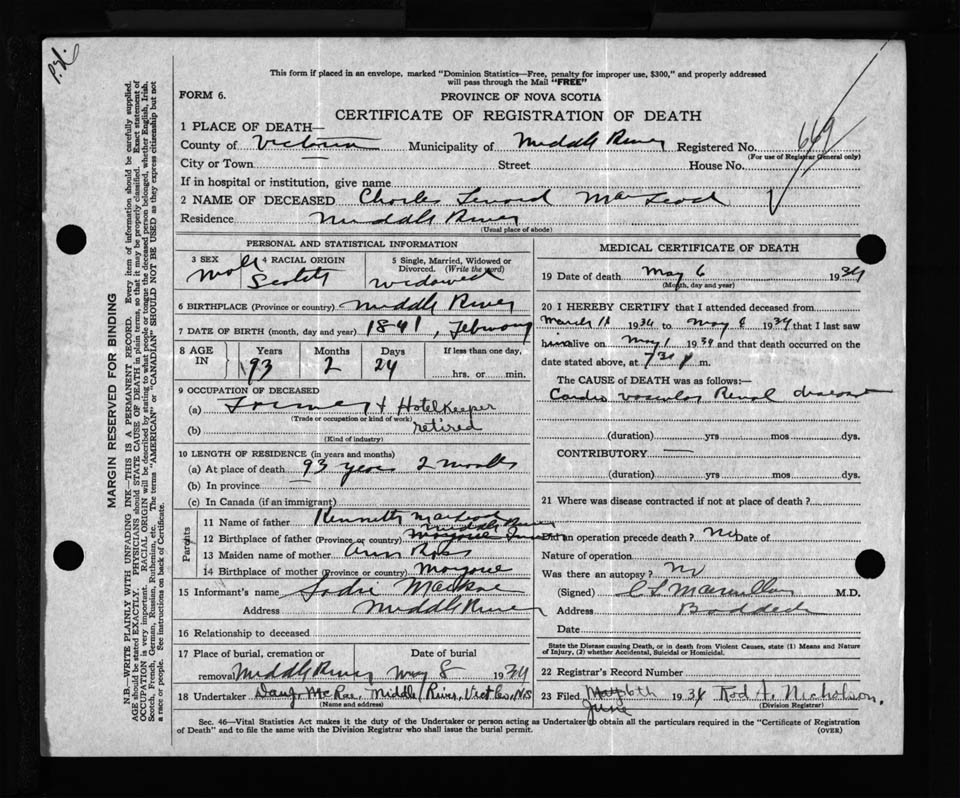 This form if placed in an envelope, marked "Dominion Statistics—Free, penalty for improper use, $300," and properly addressed
will pass through the Mail "FREE"
FORM 6.
PROVINCE OF NOVA SCOTIA
CERTIFICATE OF REGISTRATION OF DEATH
669
1 PLACE OF DEATH—
County of Victoria Municipality of Middle River Registered No.
(For use of Registrar General only)
City or Town — Street House No.
If in hospital or institution, give name
2 NAME OF DECEASED Charles Lenord MacLeod
Residence Middle River
(Usual place of abode)
PERSONAL AND STATISTICAL INFORMATION
3 SEX Male 4 RACIAL ORIGIN Scotch 5 Single, Married, Widowed or Divorced. (Write the word) widowed
6 BIRTHPLACE (Province or country) Middle River
7 DATE OF BIRTH (month, day and year) 1841, February
8 AGE IN Years 93 Months 2 Days 24 If less than one day, hrs. or min.
9 OCCUPATION OF DECEASED
(a) Farmer & Hotel Keeper
(Trade or occupation or kind of work)
(b) retired
(Kind of industry)
10 LENGTH OF RESIDENCE (in years and months)
(a) At place of death 93 years 2 months
(b) In province —
(c) In Canada (if an immigrant)
Parents
11 Name of father Kenneth MacLeod
Middle River
12 Birthplace of father (Province or country)
13 Maiden name of mother Ann Ross
14 Birthplace of mother (Province or country) Margaree
15 Informant's name Sadie MacRae
Address Middle River
16 Relationship to deceased
17 Place of burial, cremation or removal Middle River Date of burial May 8 1934
18 Undertaker McRae, Middle River, Vict Co, N.S
(Name and address)
MEDICAL CERTIFICATE OF DEATH
19 Date of death May 6 1934
(Month, day and year)
20 I HEREBY CERTIFY that I attended deceased from
March 1934 to May 1934 that I last saw
him alive on May 1 1934 and that death occurred on the
date stated above, at 7 30 P m.
The CAUSE OF DEATH was as follows:—
Cardio vascular Renal disease
(duration) yrs mos dys.
CONTRIBUTORY —
(duration) yrs. mos dys.
21 Where was disease contracted if not at place of death?
Did an operation precede death? No Date of
Nature of operation
Was there an autopsy? No
(Signed) C L Macmillan M.D.
Address Baddeck
Date
State the Disease causing Death, or in death from Violent Causes, state (1) Means and Nature
of Injury, (2) whether Accidental, Suicidal or Homicidal.
22 Registrar's Record Number
23 Filed May 6th 1934 Rod H. Nicholson,
June (Division Registrar)
Sec. 46—Vital Statistics Act makes it the duty of the Undertaker or person acting as Undertaker to obtain all the particulars required in the "Certificate of Registration
of Death" and to file the same with the Division Registrar who shall issue the burial permit.
(OVER)
MARGIN RESERVED FOR BINDING
N.B.—WRITE PLAINLY WITH UNFADING INK—THIS IS A PERMANENT RECORD. Every item of information should be carefully supplied.
AGE should be stated EXACTLY. PHYSICIANS should STATE CAUSE OF DEATH in plain terms, so that it may be properly classified. Exact statement of
OCCUPATION is very important. RACIAL ORIGIN will be described by stating to what people or tongue the deceased person belonged, whether English, Irish,
Scotch, French, German, Russian, Ruthenian, etc. The terms "AMERICAN" or "CANADIAN" SHOULD NOT BE USED as they express citizenship but not
a race or people. See instructions on back of Certificate.